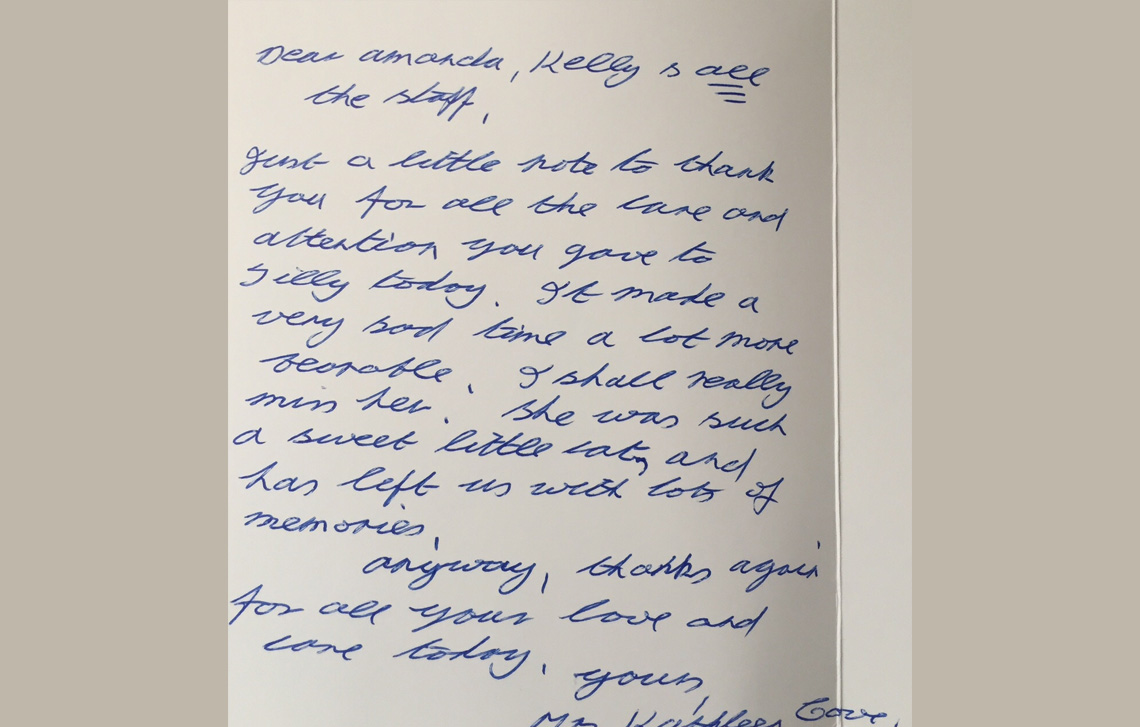 Dear Amanda, Kelly & all
the staff,
Just a little note to thank
you for all the care and
attention you gave to
Jilly today. It made a
very sad time a lot more
bearable. I shall really
miss her. She was such
a sweet little cat, and
has left us with lots of
memories.
Anyway, thanks again
for all your love and
care today.
yours,
Mrs Kathleen